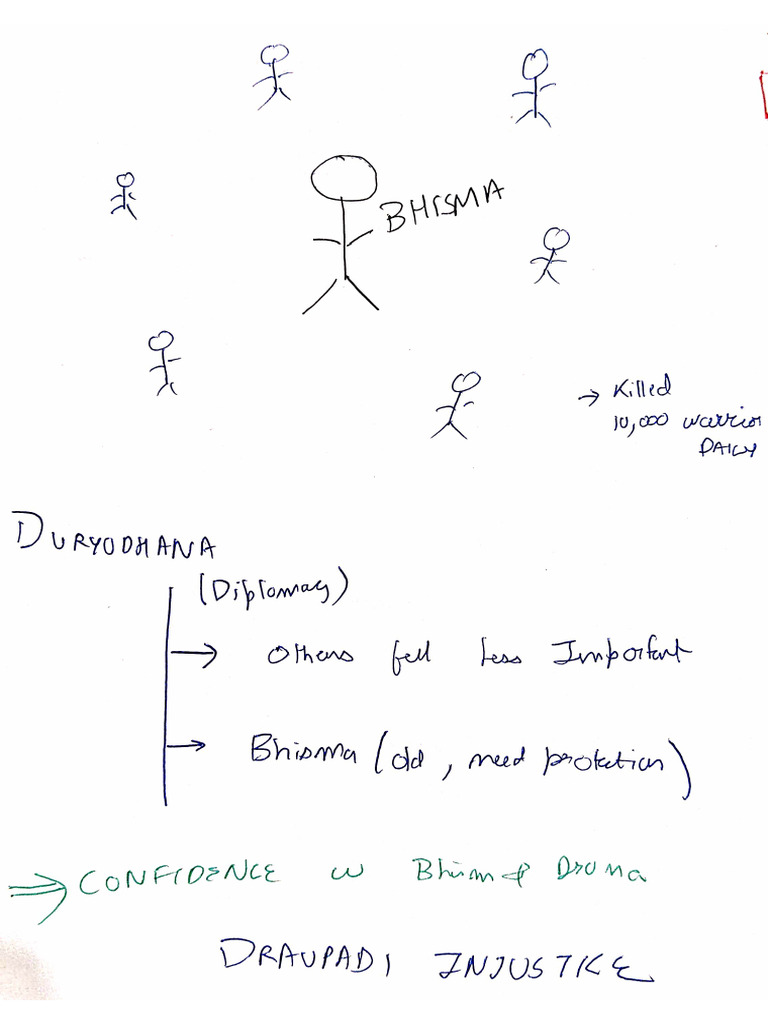 BHISMA
→ Killed
10,000 warrior
DAILY
DURYODHANA
(Diplomacy)
→ Others feel Less Important
→ Bhisma (old, need protection)
⇒ CONFIDENCE w Bhism & Drona
DRAUPADI INJUSTICE